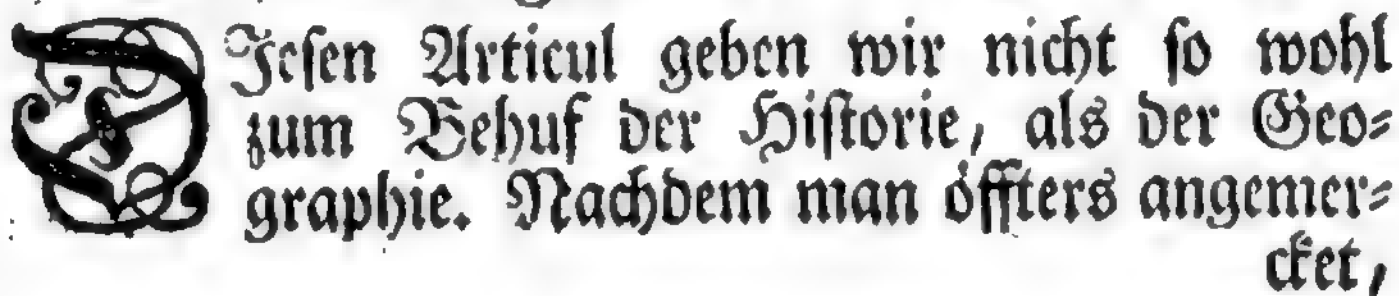 DIesen Articul geben wir nicht so wohl
zum Behuf der Historie, als der Geo-
graphie. Nachdem man öffters angemer-
cket,